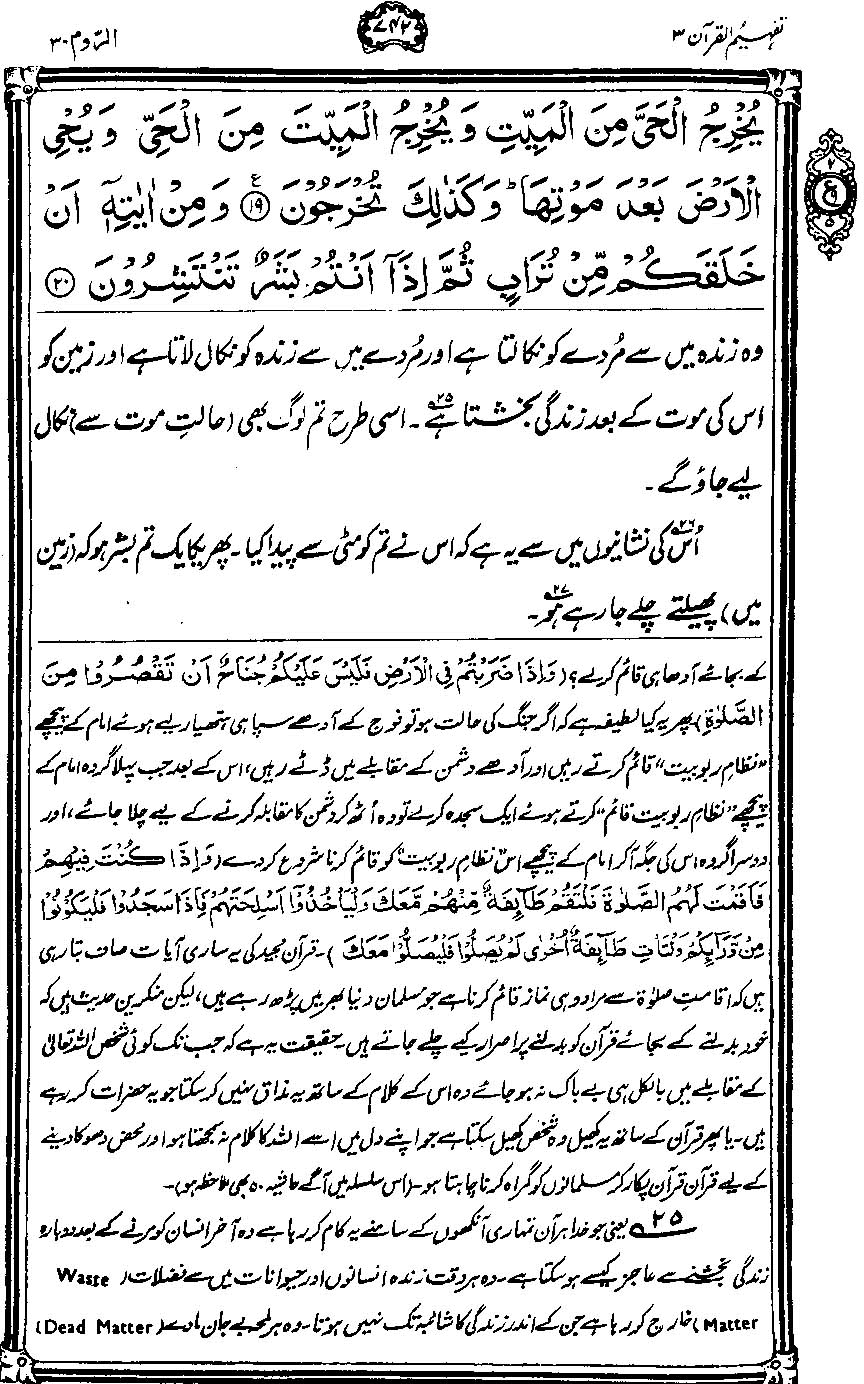 تفہیم القرآن ۳
۷۴۲
الرّوم ۳۰
يُخْرِجُ الْحَيَّ مِنَ الْمَيِّتِ وَيُخْرِجُ الْمَيِّتَ مِنَ الْحَيِّ وَيُحْيِ
الْاَرْضَ بَعْدَ مَوْتِهَا ؕ وَكَذٰلِكَ تُخْرَجُوْنَ ﴿۱۹﴾ وَمِنْ اٰيٰتِهٖۤ اَنْ
خَلَقَكُمْ مِّنْ تُرَابٍ ثُمَّ اِذَاۤ اَنْتُمْ بَشَرٌ تَنْتَشِرُوْنَ ﴿۲۰﴾
ع
وہ زندہ میں سے مُردے کو نکالتا ہے اور مُردے میں سے زندہ کو نکال لاتا ہے اور زمین کو
اس کی موت کے بعد زندگی بخشتا ہے۲۵۔ اسی طرح تم لوگ بھی (حالتِ موت سے) نکال
لیے جاؤ گے۔
اُس۲۶ کی نشانیوں میں سے یہ ہے کہ اس نے تم کو مٹی سے پیدا کیا۔ پھر یکایک تم بشر ہو کہ (زمین
میں) پھیلتے چلے جا رہے ہو۲۷۔
کے بجائے آدھا ہی قائم کرے؟ (وَاِذَا ضَرَبْتُمْ فِی الْاَرْضِ فَلَيْسَ عَلَيْكُمْ جُنَاحٌ اَنْ تَقْصُرُوْا مِنَ
الصَّلٰوةِ) پھر یہ کیا لطیفہ ہے کہ اگر جنگ کی حالت ہو تو فوج کے آدھے سپاہی ہتھیار لیے ہوئے امام کے پیچھے
"نظامِ ربوبیت" قائم کرتے رہیں اور آدھے دشمن کے مقابلے میں ڈٹے رہیں، اس کے بعد جب پہلا گروہ امام کے
پیچھے "نظامِ ربوبیت قائم" کرتے ہوئے ایک سجدہ کرلے تو وہ اُٹھ کر دشمن کا مقابلہ کرنے کے لیے چلا جائے، اور
دوسرا گروہ اس کی جگہ آکر امام کے پیچھے اس "نظامِ ربوبیت" کو قائم کرنا شروع کردے (وَاِذَا كُنْتَ فِيْهِمْ
فَاَقَمْتَ لَهُمُ الصَّلٰوةَ فَلْتَقُمْ طَآئِفَةٌ مِّنْهُمْ مَّعَكَ وَلْيَاْخُذُوْٓا اَسْلِحَتَهُمْ فَاِذَا سَجَدُوْا فَلْيَكُوْنُوْا
مِنْ وَّرَآئِكُمْ وَلْتَاْتِ طَآئِفَةٌ اُخْرٰى لَمْ يُصَلُّوْا فَلْيُصَلُّوْا مَعَكَ)۔ قرآن مجید کی یہ ساری آیات صاف بتا رہی
ہیں کہ اقامتِ صلوٰۃ سے مراد وہی نماز قائم کرنا ہے جو مسلمان دنیا بھر میں پڑھ رہے ہیں، لیکن منکرین حدیث ہیں کہ
خود بدلنے کے بجائے قرآن کو بدلنے پر اصرار کیے چلے جاتے ہیں۔ حقیقت یہ ہے کہ جب تک کوئی شخص اللہ تعالیٰ
کے مقابلے میں بالکل ہی بے باک نہ ہو جائے وہ اس کے کلام کے ساتھ یہ مذاق نہیں کر سکتا جو یہ حضرات کر رہے
ہیں۔ یا پھر قرآن کے ساتھ یہ کھیل وہ شخص کھیل سکتا ہے جو اپنے دل میں اسے اللہ کا کلام نہ سمجھتا ہو اور محض دھوکا دینے
کے لیے قرآن قرآن پکار کر مسلمانوں کو گمراہ کرنا چاہتا ہو۔ (اس سلسلہ میں آگے حاشیہ ۵۰ بھی ملاحظہ ہو)۔
۲۵ یعنی جو خدا ہر آن تمہاری آنکھوں کے سامنے یہ کام کر رہا ہے وہ آخر انسان کو مرنے کے بعد دوبارہ
زندگی بخشنے سے عاجز کیسے ہو سکتا ہے۔ وہ ہر وقت زندہ انسانوں اور حیوانات میں سے فضلات (Waste
Matter) خارج کر رہا ہے جن کے اندر زندگی کا شائبہ تک نہیں ہوتا۔ وہ ہر لمحہ بے جان مادے (Dead Matter)